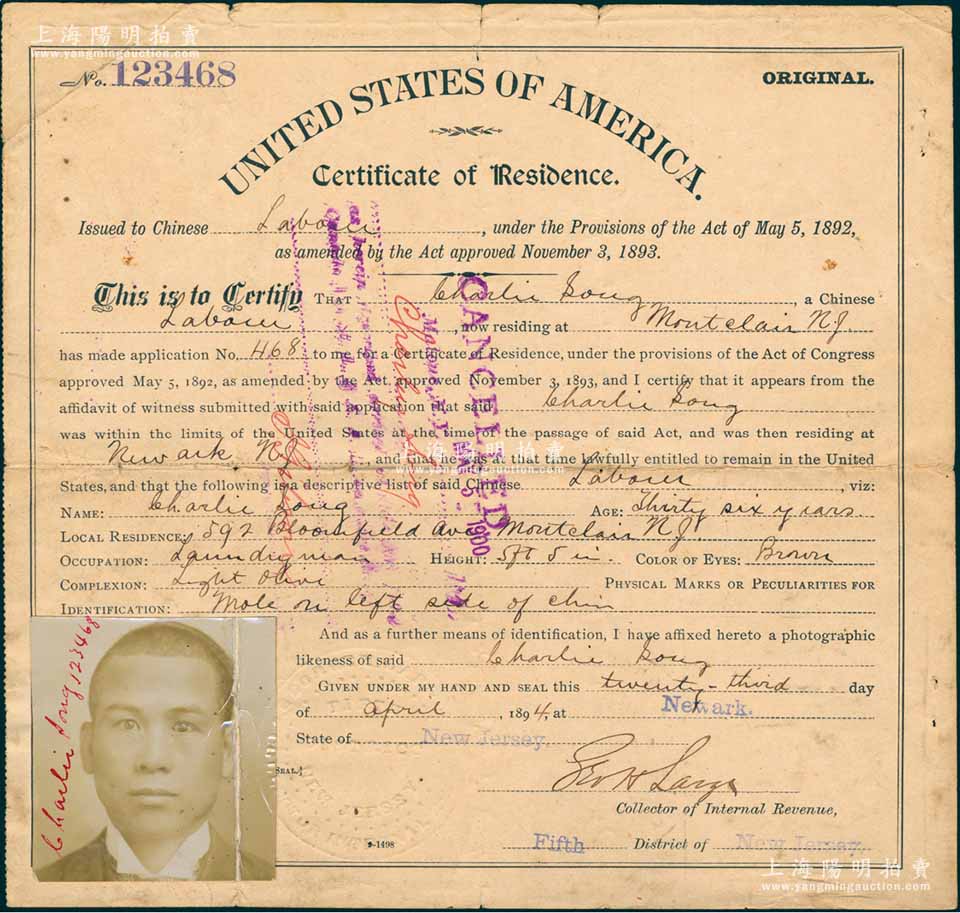 上海陽明拍賣
www.yangmingauction.com
No. 123468
ORIGINAL.
UNITED STATES OF AMERICA.
Certificate of Residence.
Issued to Chinese Laborer, under the Provisions of the Act of May 5, 1892,
as amended by the Act approved November 3, 1893.
This is to Certify THAT Charlie Long, a Chinese
Laborer, now residing at Montclair N.J.
has made application No. 468 to me for a Certificate of Residence, under the provisions of the Act of Congress
approved May 5, 1892, as amended by the Act, approved November 3, 1893, and I certify that it appears from the
affidavit of witness submitted with said application that said Charlie Long
was within the limits of the United States at the time of the passage of said Act, and was then residing at
Newark NJ, and that he was at that time lawfully entitled to remain in the United
States, and that the following is a descriptive list of said Chinese Laborer, viz:
NAME: Charlie Long AGE: Thirty six years.
LOCAL RESIDENCE: 592 Bloomfield Ave Montclair N.J.
OCCUPATION: Laundryman HEIGHT: 5ft 5 in. COLOR OF EYES: Brown
COMPLEXION: Light Olive PHYSICAL MARKS OR PECULIARITIES FOR
IDENTIFICATION: Mole on left side of chin
And as a further means of identification, I have affixed hereto a photographic
likeness of said Charlie Long
GIVEN UNDER MY HAND AND SEAL this twenty-third day
of April, 1894, at Newark.
State of New Jersey.
[SEAL.]
Geo H Large
Collector of Internal Revenue,
9-1498
Fifth District of New Jersey.
CANCELLED
5- 1900
as herein
Charlie Long
Charlie Long 123468
上海陽明拍賣
www.yangmingauction.com
上海陽明拍賣
www.yangmingauction.com